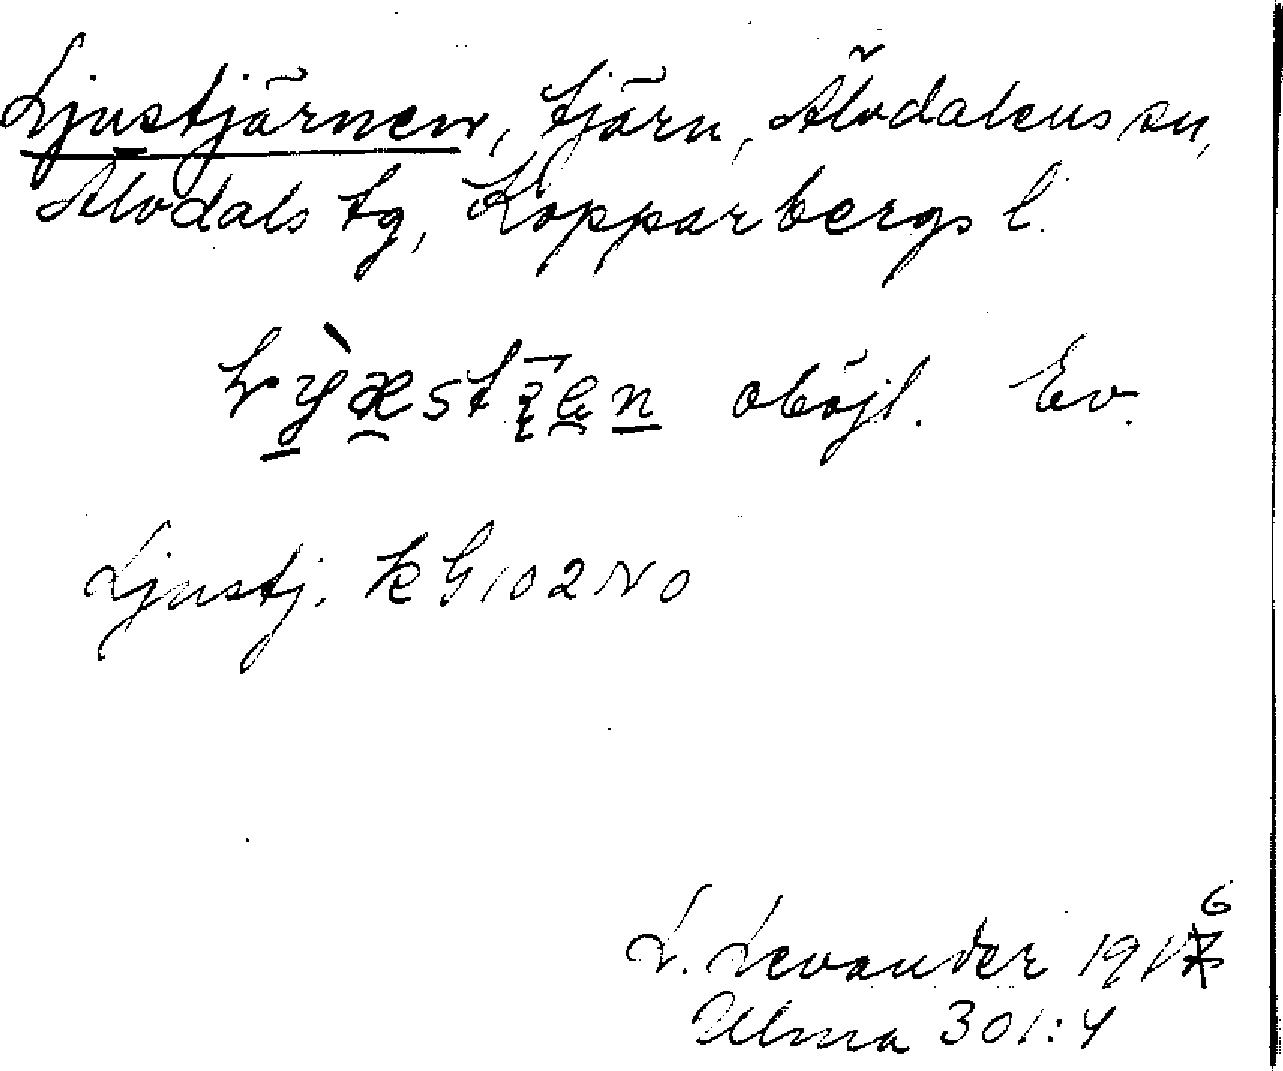 Ljustjärnen, tjärn, Älvdalens sn,
Älvdals tg, Kopparbergs l.
oböjl. Ev.
Ljustj. k G 102 NO
L. Levander 1916
Ulma 301:4